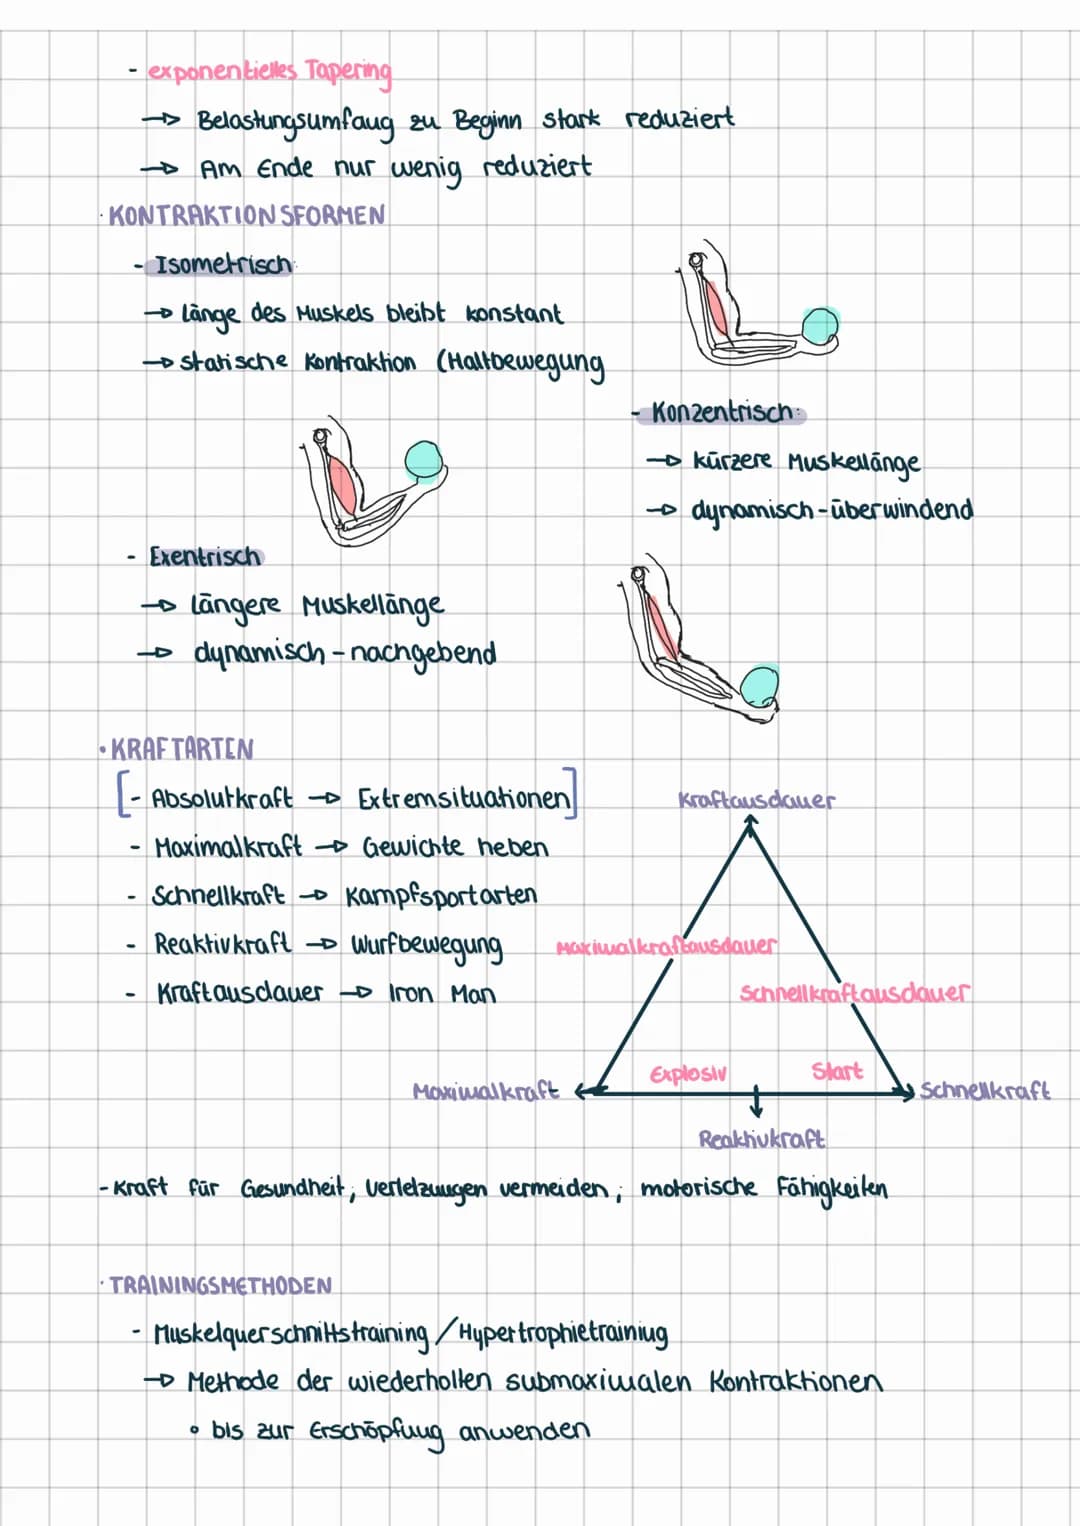 - exponentielles Tapering
→ Belastungsumfang zu Beginn stark reduziert
→ Am Ende nur wenig reduziert
· KONTRAKTIONSFORMEN
- Isometrisch:
→ Länge des Muskels bleibt konstant
→ statische Kontraktion (Haltbewegung
- Konzentrisch:
→ kürzere Muskellänge
→ dynamisch-überwindend
- Exentrisch
→ längere Muskellänge
→ dynamisch-nachgebend
• KRAFTARTEN
[- Absolutkraft → Extremsituationen]
- Maximalkraft → Gewichte heben
- Schnellkraft → Kampfsportarten
- Reaktivkraft → Wurfbewegung
- Kraftausdauer → Iron Man
Kraftausdauer
Maximalkraftausdauer
Schnellkraftausdauer
Explosiv
Start
Maximalkraft
Schnellkraft
Reaktivkraft
- Kraft für Gesundheit, Verletzungen vermeiden, motorische Fähigkeiten
· TRAININGSMETHODEN
- Muskelquerschnittstraining / Hypertrophietraining
→ Methode der wiederholten submaximalen Kontraktionen
• bis zur Erschöpfung anwenden